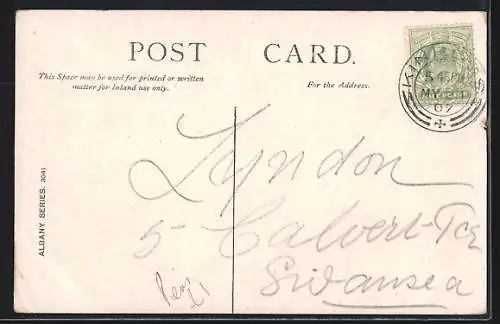 POST CARD.
This Space may be used for printed or written
matter for Inland use only.
For the Address.
MY 23
07
ALBANY SERIES. 3041
Lyndon
5 Calvert Tce
Swansea
£1